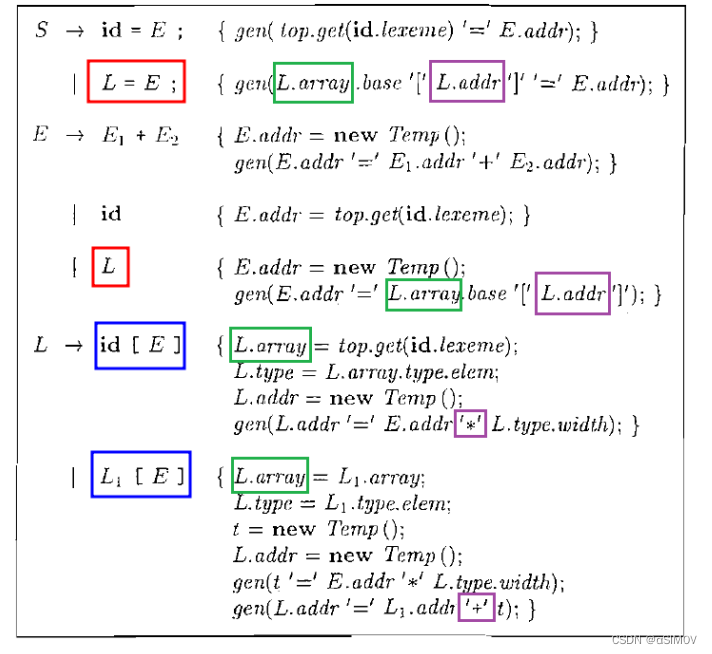 S → id = E ; { gen( top.get(id.lexeme) '=' E.addr); }
| L = E ; { gen(L.array.base '[' L.addr ']' '=' E.addr); }
E → E₁ + E₂ { E.addr = new Temp();
gen(E.addr '=' E₁.addr '+' E₂.addr); }
| id { E.addr = top.get(id.lexeme); }
| L { E.addr = new Temp();
gen(E.addr '=' L.array.base '[' L.addr ']'); }
L → id [ E ] { L.array = top.get(id.lexeme);
L.type = L.array.type.elem;
L.addr = new Temp();
gen(L.addr '=' E.addr '*' L.type.width); }
| L₁ [ E ] { L.array = L₁.array;
L.type = L₁.type.elem;
t = new Temp();
L.addr = new Temp();
gen(t '=' E.addr '*' L.type.width);
gen(L.addr '=' L₁.addr '+' t); }
CSDN @dSIMOV